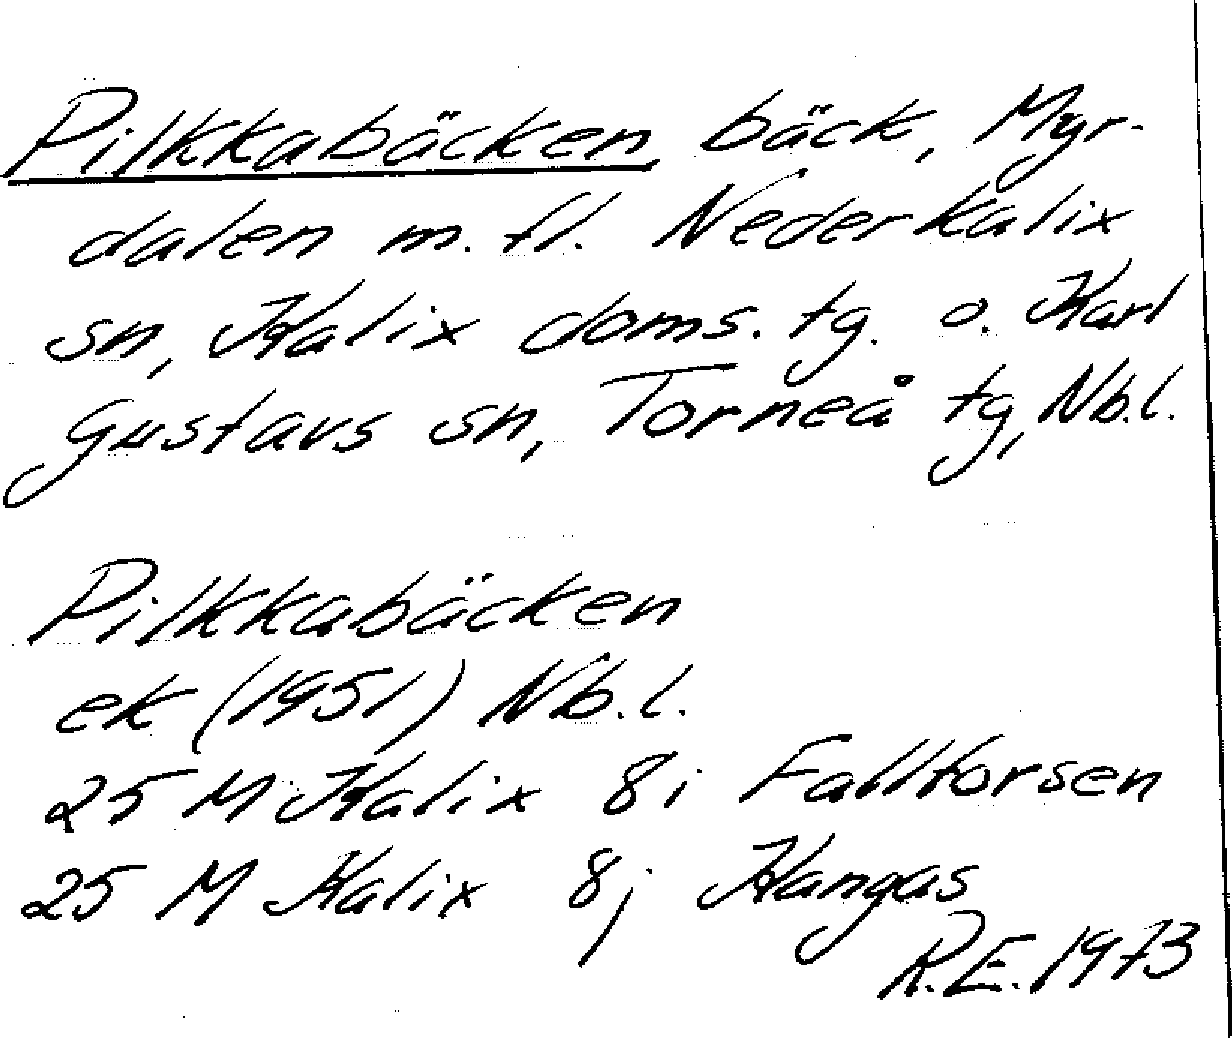 Pilkkabäcken, bäck, Myr-
dalen m. fl. Nederkalix
sn, Kalix doms. tg. o. Karl
Gustavs sn, Torneå tg, Nb.l.
Pilkkabäcken
ek (1951) Nb.l.
25 M Kalix 8i Fallforsen
25 M Kalix 8j Kangas
R.E. 1973